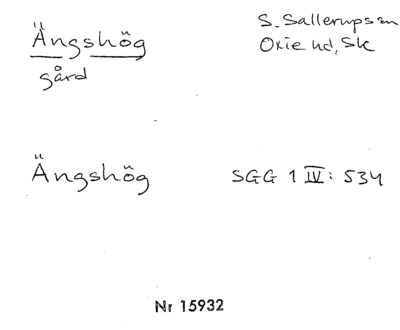 Ängshög
gård
S. Sallerupssn
Oxie hd, Sk
Ängshög
SGG 1 IV: 534
Nr 15932